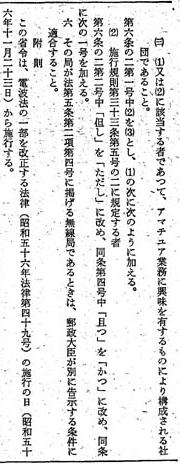 ㈢ (1)又は(2)に該当する者であつて、アマチユア業務に興味を有するものにより構成される社
団であること。
第六条の二第一号中(2)を(3)とし、(1)の次に次のように加える。
(2) 施行規則第三十三条第五号の二に規定する者
第六条の二第二号中「但し」を「ただし」に改め、同条第四号中「且つ」を「かつ」に改め、同条
に次の一号を加える。
六 その局が法第五条第二項第四号に掲げる無線局であるときは、郵政大臣が別に告示する条件に
適合すること。
附 則
この省令は、電波法の一部を改正する法律(昭和五十六年法律第四十九号)の施行の日(昭和五十
六年十一月二十三日)から施行する。